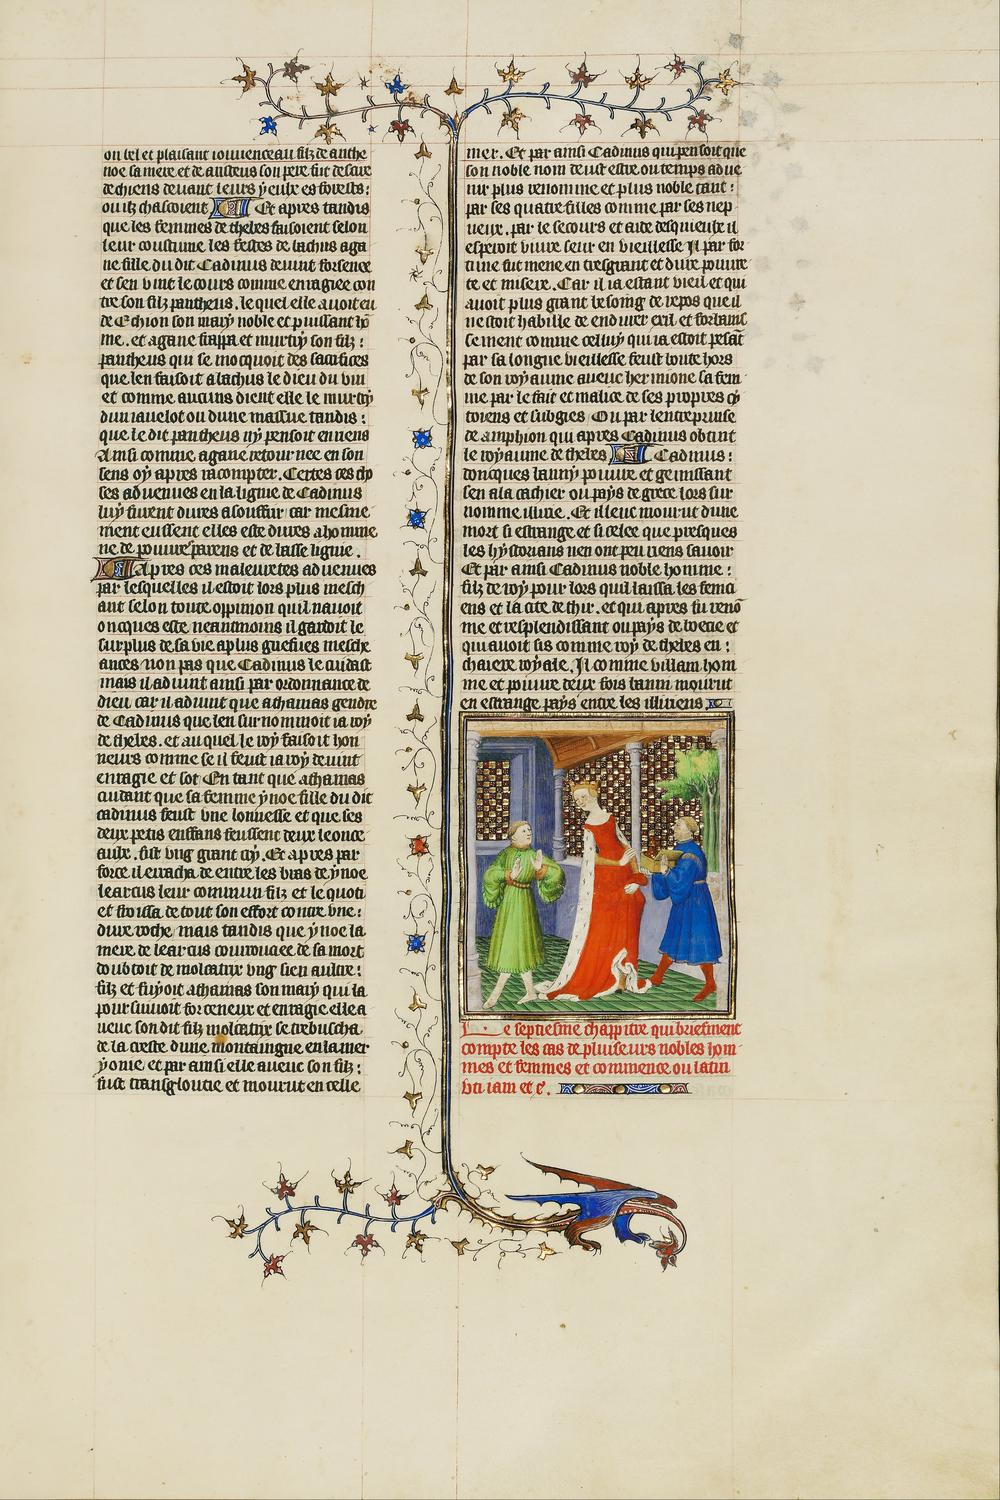 ou bel et plaisant iouuenceau filz de anthe
noe sa mere et de austeus son pere fut desciré
de chiens deuant leurs yeulx es forestz:
ou ilz chassoient Et apres tandis
que les femmes de thebes faisoient selon
leur coustume les festes de bachus aga
ne fille du dit Cadmus deuint forsence
et sen vint le cours comme enragiee con
tre son filz pantheus. le quel elle auoit eu
de Echion son mary noble et puissant hō
me. et agane frappa et murtry son filz:
pantheus qui se mocquoit des sacrifices
que len faisoit a bachus le dieu du vin
et comme aucuns dient elle le murtry
dun iauelot ou dune massue tandis:
que le dit pantheus ny pensoit en riens
Ainsi comme agane retournee en son
sens oy apres racompter. Certes ces cho
ses aduenues en la lignie de Cadmus
luy furent dures a souffrir car mesme
ment eussent elles esté dures a homme
ne de poures parens et de basse lignie.
Apres ces maleuretes aduenues
par lesquelles il estoit lors plus mesch
ant selon toute oppinion quil nauoit
oncques esté neantmoins il gardoit le
surplus de sa vie a plus griefues mesche
ances non pas que Cadmus le cuidast
mais il aduint ainsi par ordonnance de
dieu car il aduint que athamas gendre
de Cadmus que len surnommoit ia roy
de thebes. et au quel le roy faisoit hon
neurs comme se il feust ia roy deuint
enragie et sot En tant que athamas
cuidant que sa femme ynoe fille du dit
cadmus feust vne lonnesse et que ses
deux petis enffans feussent deux leonce
aulx. fist vng grant cry. Et apres par
force il erracha de entre les bras de ynoe
learcus leur commun filz et le quoti
et froissa de tout son effort contre vne:
dure roche mais tandis que ynoe la
mere de learcus courroucee de sa mort
doubtoit de molcatrix vng sien aultre:
filz et fuyoit athamas son mary qui la
poursuiuoit forceneux et enragie elle a
ueuc son dit filz molcatrix se trebuscha
de la creste dune montaingne en la mer
yonie et par ainsi elle aueuc son filz:
fust transgloutie et mourut en celle
mer. Et par ainsi Cadmus qui pensoit que
son noble nom deust estre ou temps adue
nir plus renomme et plus noble tant:
par ses quatre filles comme par ses nep
ueux. par le secours et aide desquieulx il
esperoit viure seur en vieillesse Il par for
tune fut mene en tresgrant et dure pouure
te et misere. Car il ia estant vieil et qui
auoit plus grant besoing de repos que il
nestoit habille de endurer exil et forbanis
sement comme celluy qui ia estoit pesāt
par sa longue vieillesse feust boute hors
de son royaume aueuc hermione sa fem
me par le fait et malice de ses propres cy
toiens et subgies Ou par lentreprinse
de amphion qui apres Cadmus obtint
le royaume de thebes Cadmus:
doncques banny pouure et gemissant
sen ala cachier ou pays de grece lors sur
nomme illirie. Et illeuc mourut dune
mort si estrange et si celee que presques
les hystorians nen ont peu riens sauoir
Et par ainsi Cadmus noble homme:
filz de roy pour lors qui laissa les fenici
ens et la cite de thir. et qui apres fu renō
me et resplendissant ou pays de boecie et
qui auoit sis comme roy de thebes en:
chaiere royale. Il comme villain hom
me et pouure deux fois banni mourut
en estrange pays entre les illiriens
Le septiesme chappitre qui briefment
compte les cas de pluiseurs nobles hom
mes et femmes et commence ou latin
Uti iam etc̄.